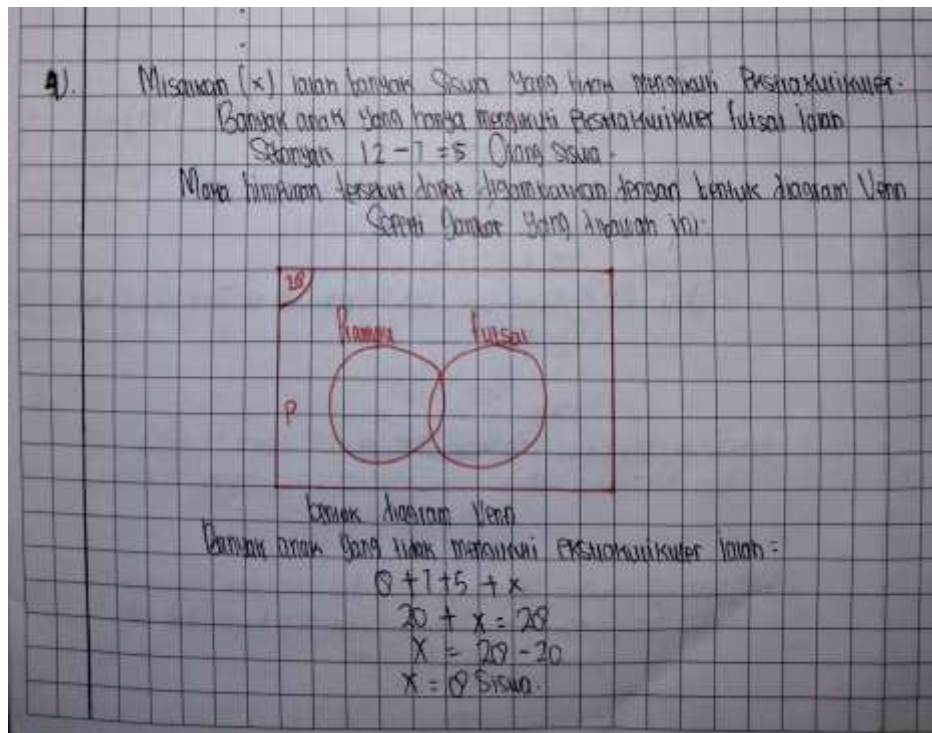 4).
Misalkan (x) ialah banyak siswa yang tidak mengikuti Ekstrakurikuler.
Banyak anak yang hanya mengikuti Ekstrakurikuler futsal ialah
Sebanyak 12 - 7 = 5 Orang siswa.
Maka himpunan tersebut dapat digambarkan dengan bentuk diagram Venn
Seperti gambar yang dibawah ini:
28
Pramuka Futsal
P
bentuk diagram Venn
Banyak anak yang tidak mengikuti Ekstrakurikuler ialah =
8 + 7 + 5 + x
20 + x = 28
x = 28 - 20
x = 8 Siswa.